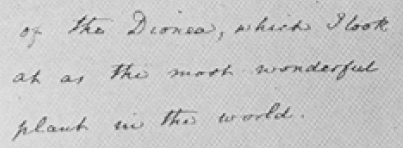 of the Dionea, which I look
at as the most wonderful
plant in the world.